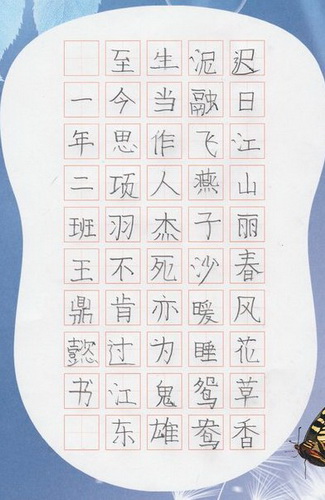 迟日江山丽春风花草香
泥融飞燕子沙暖睡鸳鸯
生当作人杰死亦为鬼雄
至今思项羽不肯过江东
一年二班王鼎懿书